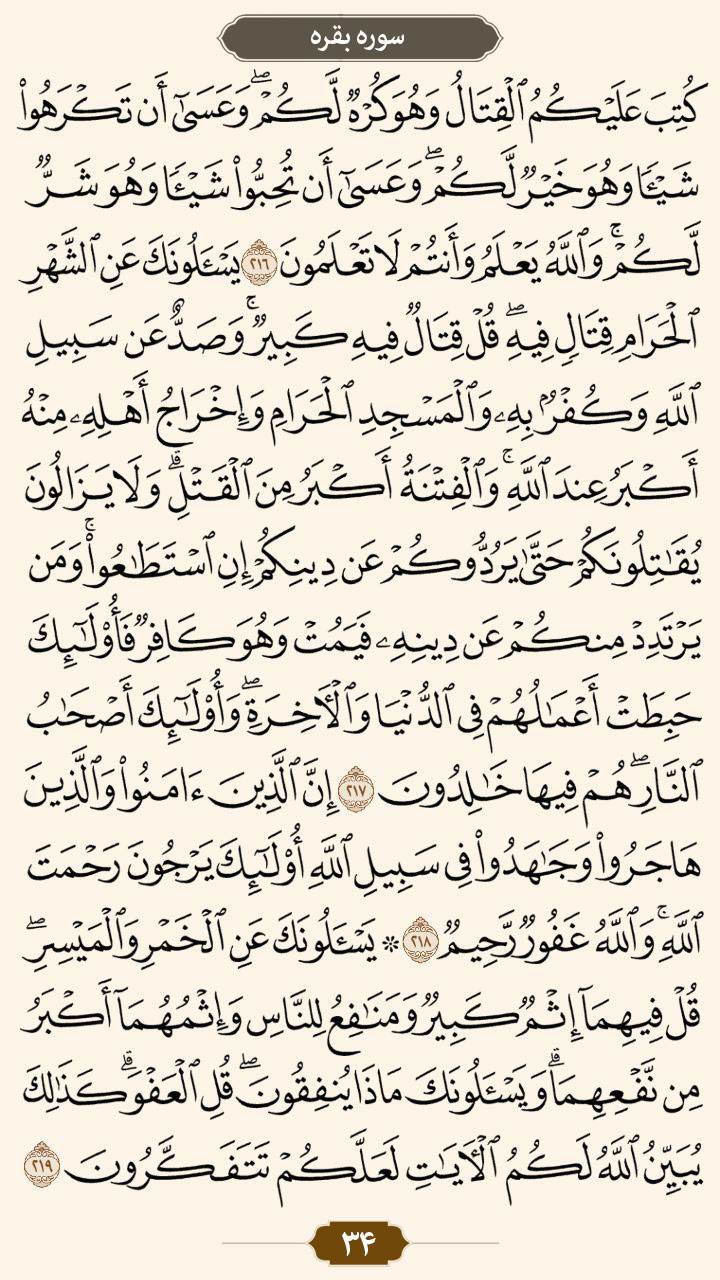 سوره بقره
كُتِبَ عَلَيْكُمُ ٱلْقِتَالُ وَهُوَ كُرْهٌ لَّكُمْ ۖ وَعَسَىٰٓ أَن تَكْرَهُوا۟
شَيْـًٔا وَهُوَ خَيْرٌ لَّكُمْ ۖ وَعَسَىٰٓ أَن تُحِبُّوا۟ شَيْـًٔا وَهُوَ شَرٌّ
لَّكُمْ ۗ وَٱللَّهُ يَعْلَمُ وَأَنتُمْ لَا تَعْلَمُونَ ٢١٦ يَسْـَٔلُونَكَ عَنِ ٱلشَّهْرِ
ٱلْحَرَامِ قِتَالٍ فِيهِ ۖ قُلْ قِتَالٌ فِيهِ كَبِيرٌ ۚ وَصَدٌّ عَن سَبِيلِ
ٱللَّهِ وَكُفْرٌۢ بِهِۦ وَٱلْمَسْجِدِ ٱلْحَرَامِ وَإِخْرَاجُ أَهْلِهِۦ مِنْهُ
أَكْبَرُ عِندَ ٱللَّهِ ۚ وَٱلْفِتْنَةُ أَكْبَرُ مِنَ ٱلْقَتْلِ ۗ وَلَا يَزَالُونَ
يُقَـٰتِلُونَكُمْ حَتَّىٰ يَرُدُّوكُمْ عَن دِينِكُمْ إِنِ ٱسْتَطَـٰعُوا۟ ۚ وَمَن
يَرْتَدِدْ مِنكُمْ عَن دِينِهِۦ فَيَمُتْ وَهُوَ كَافِرٌ فَأُو۟لَـٰٓئِكَ
حَبِطَتْ أَعْمَـٰلُهُمْ فِى ٱلدُّنْيَا وَٱلْـَٔاخِرَةِ ۖ وَأُو۟لَـٰٓئِكَ أَصْحَـٰبُ
ٱلنَّارِ ۖ هُمْ فِيهَا خَـٰلِدُونَ ٢١٧ إِنَّ ٱلَّذِينَ ءَامَنُوا۟ وَٱلَّذِينَ
هَاجَرُوا۟ وَجَـٰهَدُوا۟ فِى سَبِيلِ ٱللَّهِ أُو۟لَـٰٓئِكَ يَرْجُونَ رَحْمَتَ
ٱللَّهِ ۚ وَٱللَّهُ غَفُورٌ رَّحِيمٌ ٢١٨ ۞ يَسْـَٔلُونَكَ عَنِ ٱلْخَمْرِ وَٱلْمَيْسِرِ ۖ
قُلْ فِيهِمَآ إِثْمٌ كَبِيرٌ وَمَنَـٰفِعُ لِلنَّاسِ وَإِثْمُهُمَآ أَكْبَرُ
مِن نَّفْعِهِمَا ۗ وَيَسْـَٔلُونَكَ مَاذَا يُنفِقُونَ ۖ قُلِ ٱلْعَفْوَ ۗ كَذَٰلِكَ
يُبَيِّنُ ٱللَّهُ لَكُمُ ٱلْـَٔايَـٰتِ لَعَلَّكُمْ تَتَفَكَّرُونَ ٢١٩
۳۴